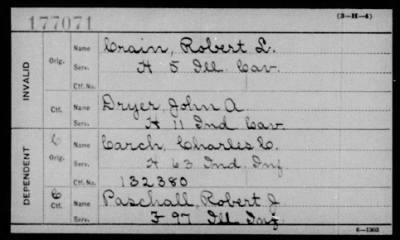 177071
(3—H—4)
INVALID
Orig.
Name Crain, Robert L.
Serv. H 5 Ill Cav.
Ctf. No.
Ctf.
Name Dryer, John A
Serv. H 11 Ind Cav.
DEPENDENT
C
Orig.
Name Carch, Charles C.
Serv. H 63 Ind Inf
Ctf. No. 132380
C
Ctf.
Name Paschall, Robert J
Serv. F 97 Ill Inf
6—1303